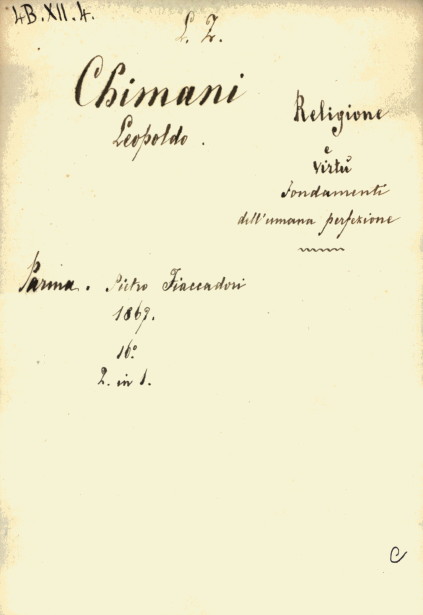 4B.XII.4.
L. Z.
Chimani
Leopoldo.
Religione
e
Virtù
Fondamenti
dell'umana perfezione
Parma. Pietro Fiaccadori
1869.
16°
2. in 1.
C